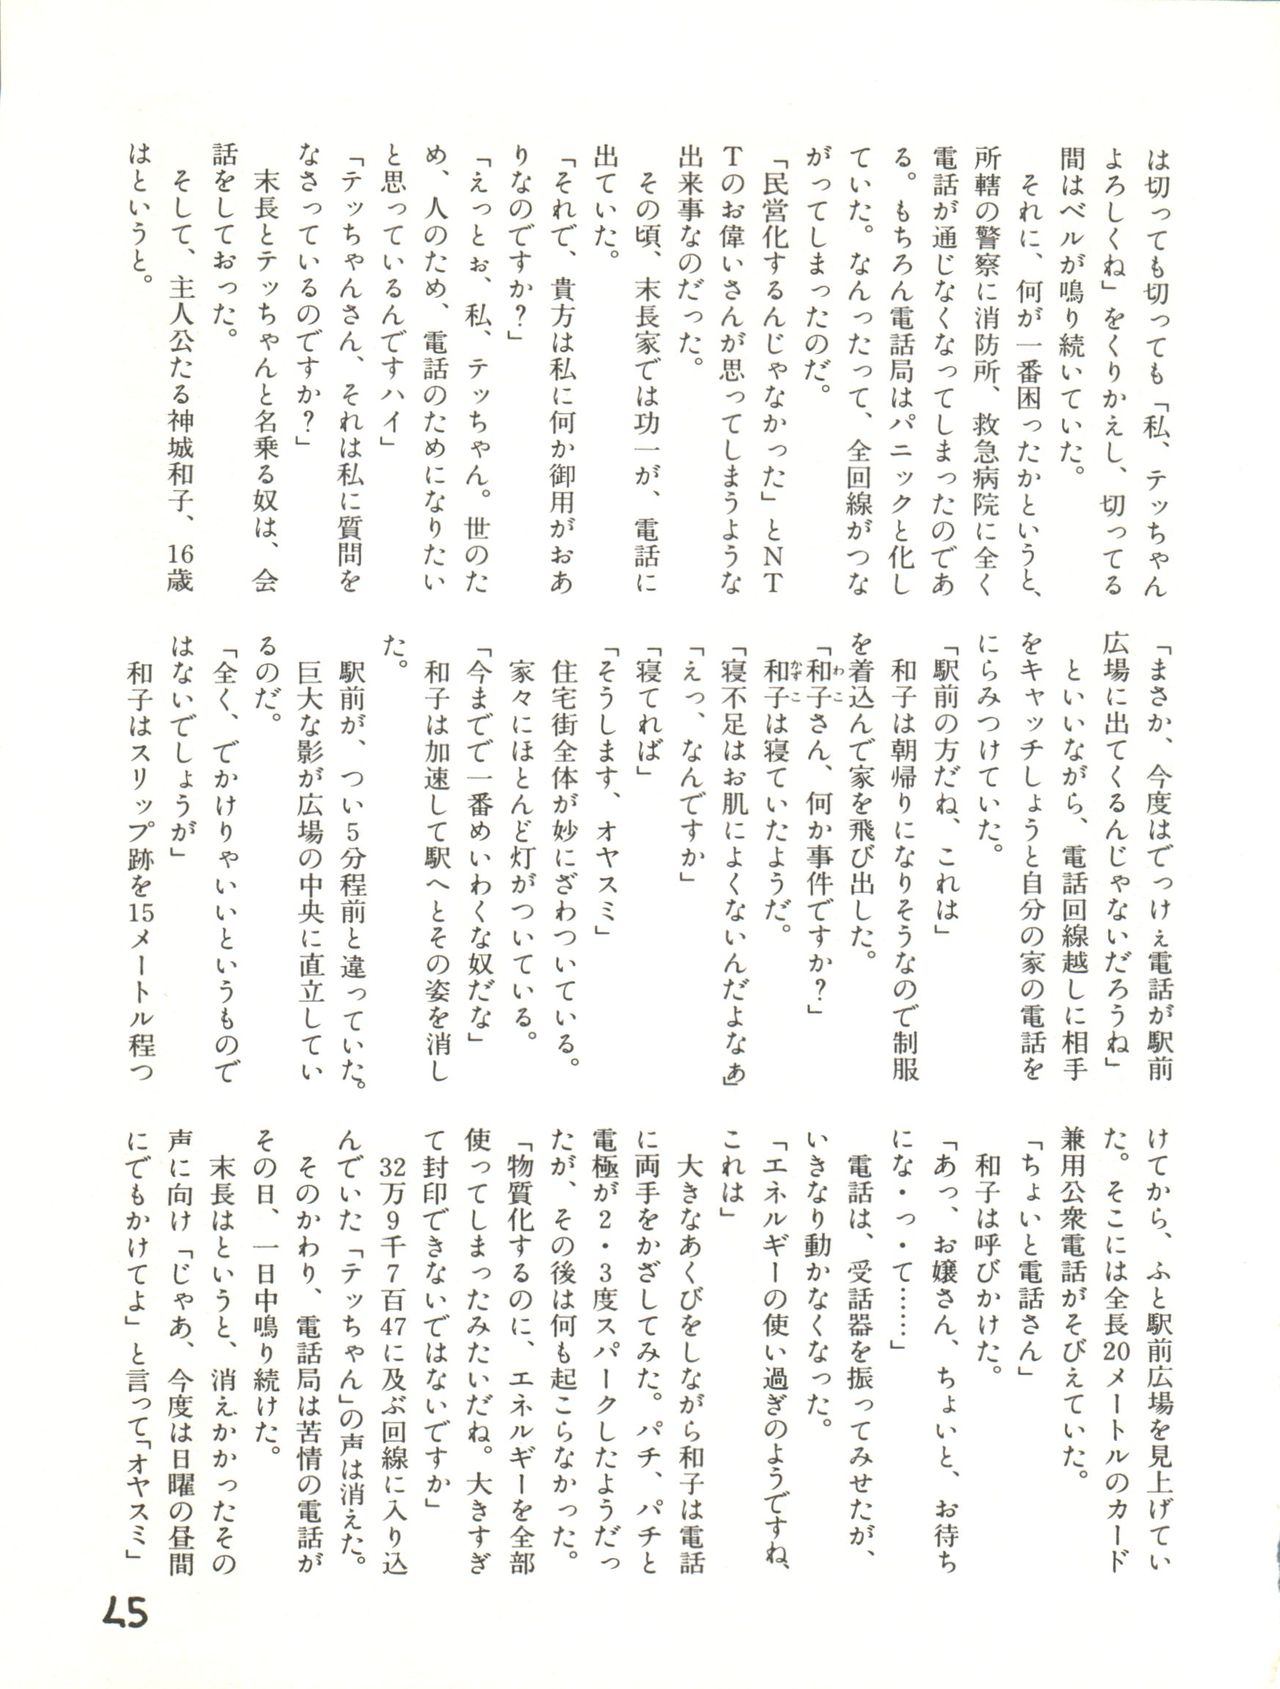 は切っても切っても「私、テッちゃん
よろしくね」をくりかえし、切ってる
間はベルが鳴り続いていた。
それに、何が一番困ったかというと、
所轄の警察に消防所、救急病院に全く
電話が通じなくなってしまったのであ
る。もちろん電話局はパニックと化し
ていた。なんったって、全回線がつな
がってしまったのだ。
「民営化するんじゃなかった」とNT
Tのお偉いさんが思ってしまうような
出来事なのだった。
その頃、末長家では功一が、電話に
出ていた。
「それで、貴方は私に何か御用がおあ
りなのですか？」
「えっとぉ、私、テッちゃん。世のた
め、人のため、電話のためになりたい
と思っているんですハイ」
「テッちゃんさん、それは私に質問を
なさっているのですか？」
末長とテッちゃんと名乗る奴は、会
話をしておった。
そして、主人公たる神城和子、16歳
はというと。
「まさか、今度はでっけぇ電話が駅前
広場に出てくるんじゃないだろうね」
といいながら、電話回線越しに相手
をキャッチしょうと自分の家の電話を
にらみつけていた。
「駅前の方だね、これは」
和子は朝帰りになりそうなので制服
を着込んで家を飛び出した。
「和子さん、何か事件ですか？」
わこ
和子は寝ていたようだ。
かずこ
「寝不足はお肌によくないんだよなぁ」
「えっ、なんですか」
「寝てれば」
「そうします、オヤスミ」
住宅街全体が妙にざわついている。
家々にほとんど灯がついている。
「今までで一番めいわくな奴だな」
和子は加速して駅へとその姿を消し
た。
駅前が、つい5分程前と違っていた。
巨大な影が広場の中央に直立してい
るのだ。
「全く、でかけりゃいいというもので
はないでしょうが」
和子はスリップ跡を15メートル程つ
けてから、ふと駅前広場を見上げてい
た。そこには全長20メートルのカード
兼用公衆電話がそびえていた。
「ちょいと電話さん」
和子は呼びかけた。
「あっ、お嬢さん、ちょいと、お待ち
にな・っ・て……」
電話は、受話器を振ってみせたが、
いきなり動かなくなった。
「エネルギーの使い過ぎのようですね、
これは」
大きなあくびをしながら和子は電話
に両手をかざしてみた。パチ、パチと
電極が2・3度スパークしたようだっ
たが、その後は何も起こらなかった。
「物質化するのに、エネルギーを全部
使ってしまったみたいだね。大きすぎ
て封印できないではないですか」
32万9千7百47に及ぶ回線に入り込
んでいた「テッちゃん」の声は消えた。
そのかわり、電話局は苦情の電話が
その日、一日中鳴り続けた。
末長はというと、消えかかったその
声に向け「じゃあ、今度は日曜の昼間
にでもかけてよ」と言って「オヤスミ」
45